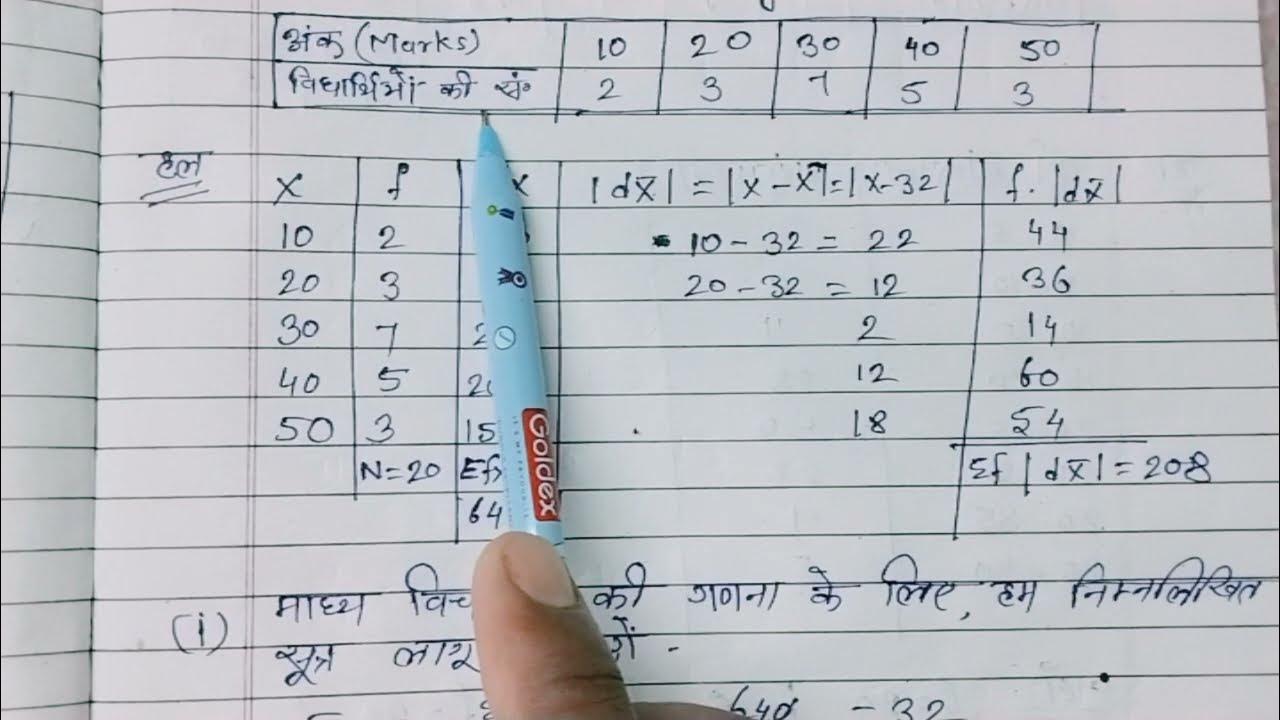 अंक (Marks) 10 20 30 40 50
विद्यार्थियों की सं॰ 2 3 7 5 3
हल
X f x |dx̄| = |X - X̄| = |X-32| f. |dx̄|
10 2 10 - 32 = 22 44
20 3 20 - 32 = 12 36
30 7 2 2 14
40 5 20 12 60
50 3 15 18 54
N=20 Efx Σf |dx̄| = 208
64
Goldex
(i) माध्य की गणना के लिए, हम निम्नलिखित
सूत्र लागू -
640 - 32